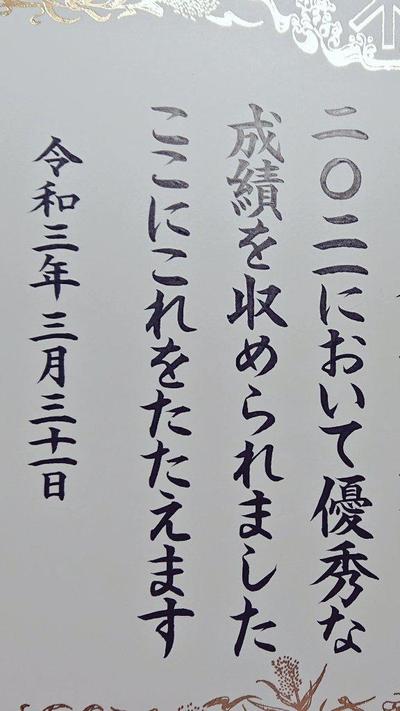 二〇二一において優秀な
成績を収められました
ここにこれをたたえます
令和三年三月三十一日